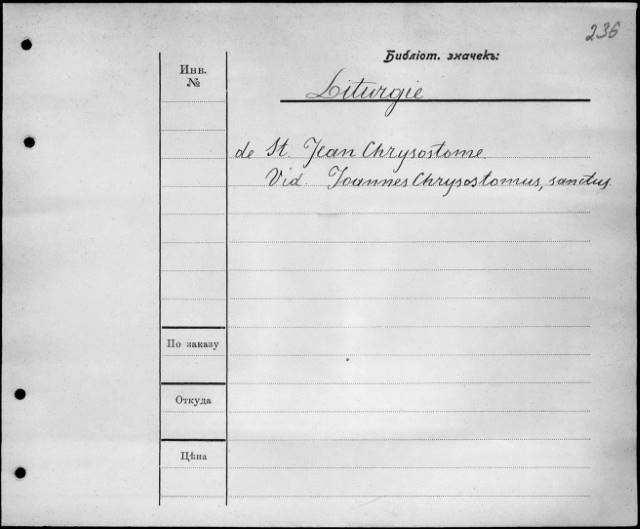 236
Библіот. значекъ:
Инв.
№
Liturgie
de St. Jean Chrysostome.
Vid. Joannes Chrysostomus, sanctus.
По заказу
Откуда
Цѣна